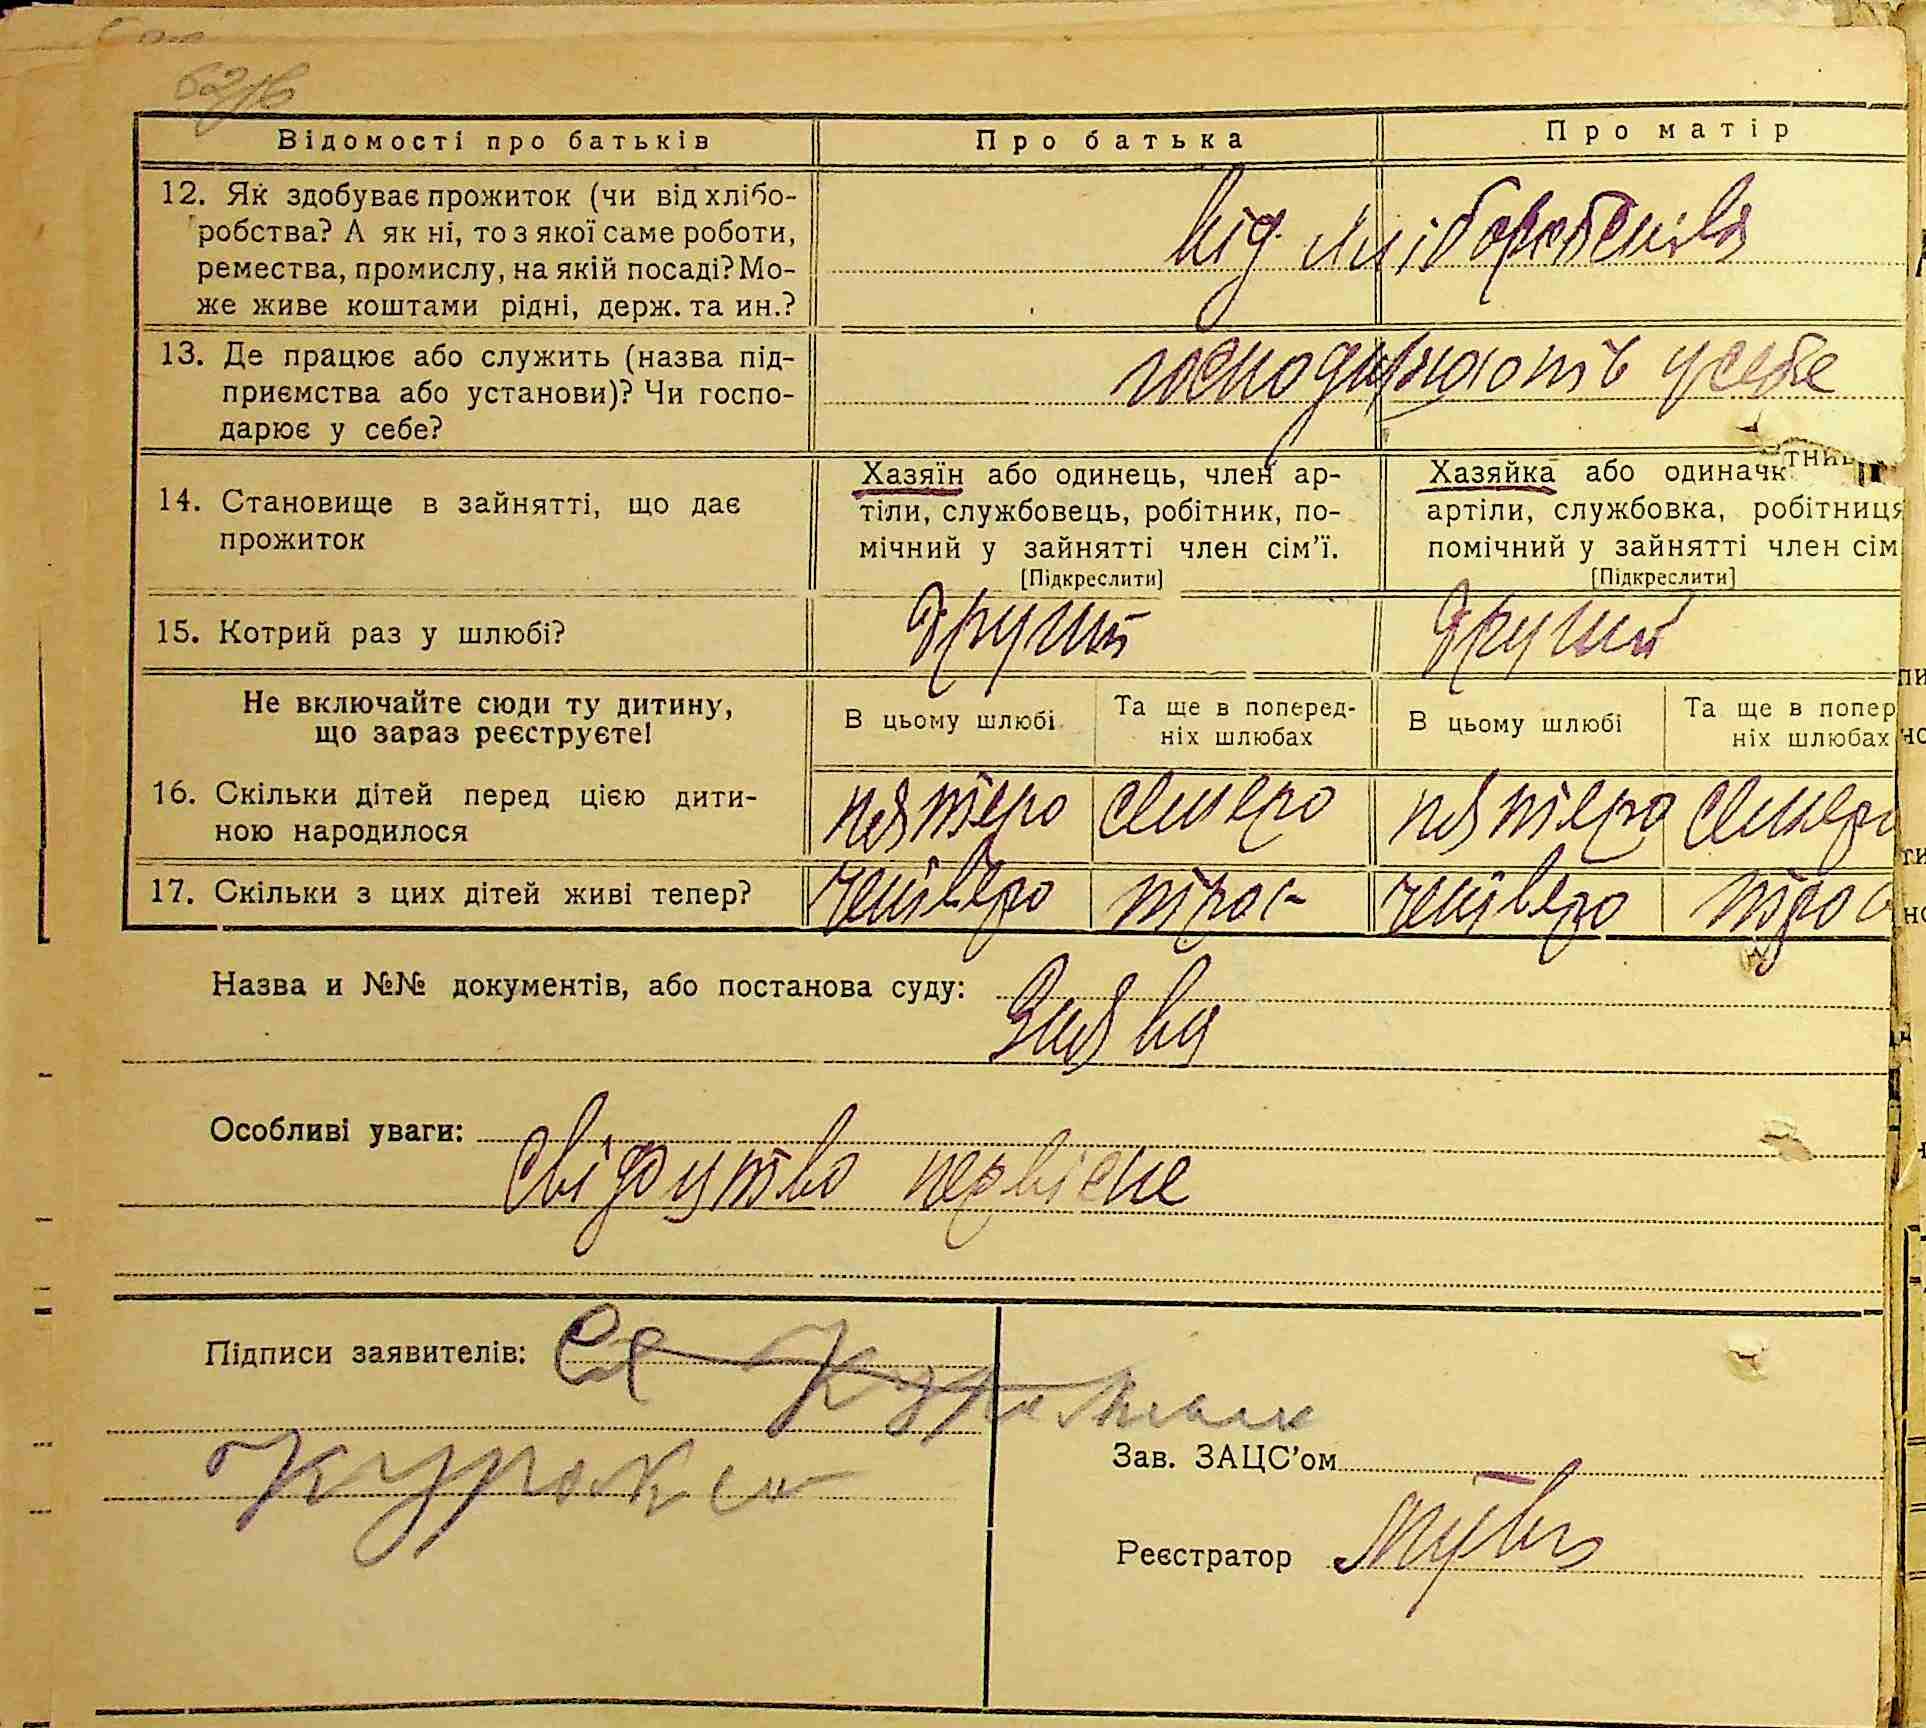 Відомості про батьків Про батька Про матір
12. Як здобуває прожиток (чи від хлібо-
робства? А як ні, то з якої саме роботи,
ремества, промислу, на якій посаді? Мо-
же живе коштами рідні, держ. та ин.?
від хліборобства
13. Де працює або служить (назва під-
приємства або установи)? Чи госпо-
дарює у себе?
господарюють у себе
14. Становище в зайнятті, що дає
прожиток
Хазяїн або одинець, член ар-
тіли, службовець, робітник, по-
мічний у зайнятті член сім’ї.
[Підкреслити]
Хазяйка або одиначк
артіли, службовка, робітниця
помічний у зайнятті член сім
[Підкреслити]
15. Котрий раз у шлюбі? другий другий
Не включайте сюди ту дитину,
що зараз реєструєте!
В цьому шлюбі
Та ще в поперед-
ніх шлюбах
В цьому шлюбі
Та ще в попер
ніх шлюбах
16. Скільки дітей перед цією дити-
ною народилося
пятеро семеро пятеро семеро
17. Скільки з цих дітей живі тепер? четверо троє четверо троє
Назва и №№ документів, або постанова суду:
Заява
Особливі уваги:
свідоцтво первісне
Підписи заявителів:
Зав. ЗАЦС’ом
Реєстратор